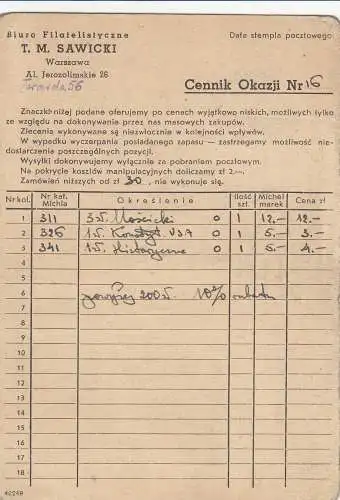 Biuro Filatelistyczne
T. M. SAWICKI
Warszawa
Al. Jerozolimskie 26
Twarda 56
Data stempla pocztowego:
Cennik Okazji Nr 16
Znaczki niżej podane oferujemy po cenach wyjątkowo niskich, możliwych tylko
ze względu na dokonywanie przez nas masowych zakupów.
Zlecenia wykonywane są niezwłocznie w kolejności wpływów.
W wypadku wyczerpania posiadanego zapasu — zastrzegamy możliwość nie-
dostarczenia poszczególnych pozycji.
Wysyłki dokonywujemy wyłącznie za pobraniem pocztowym.
Na pokrycie kosztów manipulacyjnych doliczamy zł 2.—.
Zamówień niższych od zł 30, nie wykonuje się.
Nr kol. Nr kat. Michla Określenie Ilość szt. Michel marek Cena zł
1 311 3 zł. Mościcki O 1 12.— 12.—
2 326 1 zł. Konstyt USA O 1 5.— 3.—
3 341 1 zł. Historyczne O 1 5.— 4.—
4
5
6 powyżej 200 zł. 10% rabatu
7
8
9
10
11
12
13
14
15
16
17
18
42248